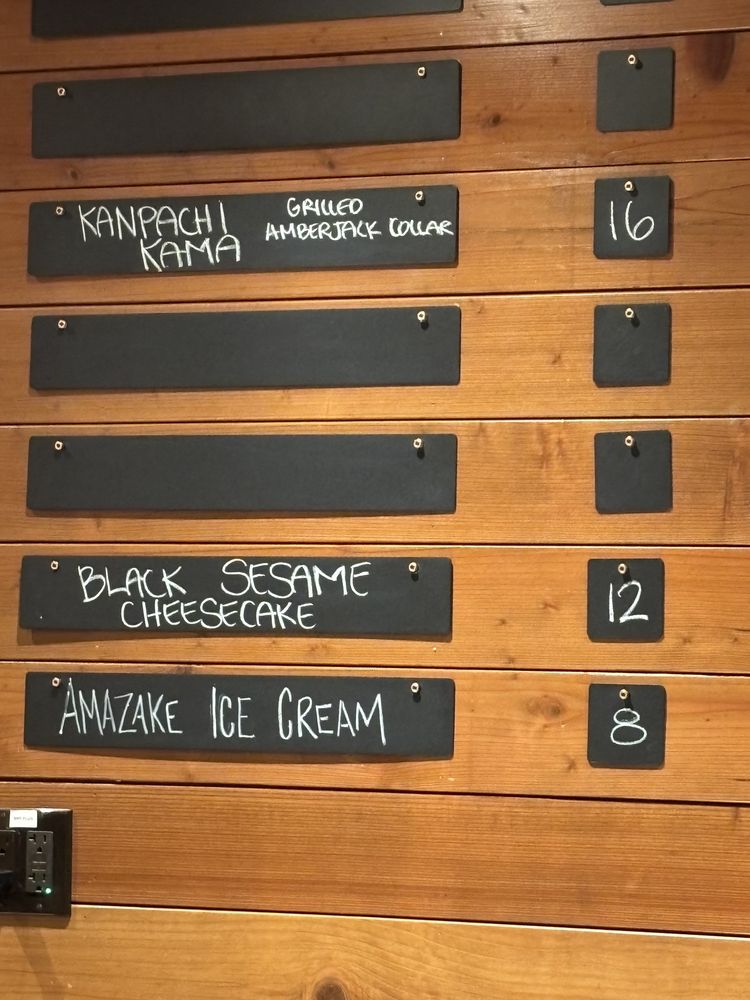 KANPACHI KAMA
GRILLED
AMBERJACK COLLAR
16
BLACK SESAME
CHEESECAKE
12
AMAZAKE ICE CREAM
8